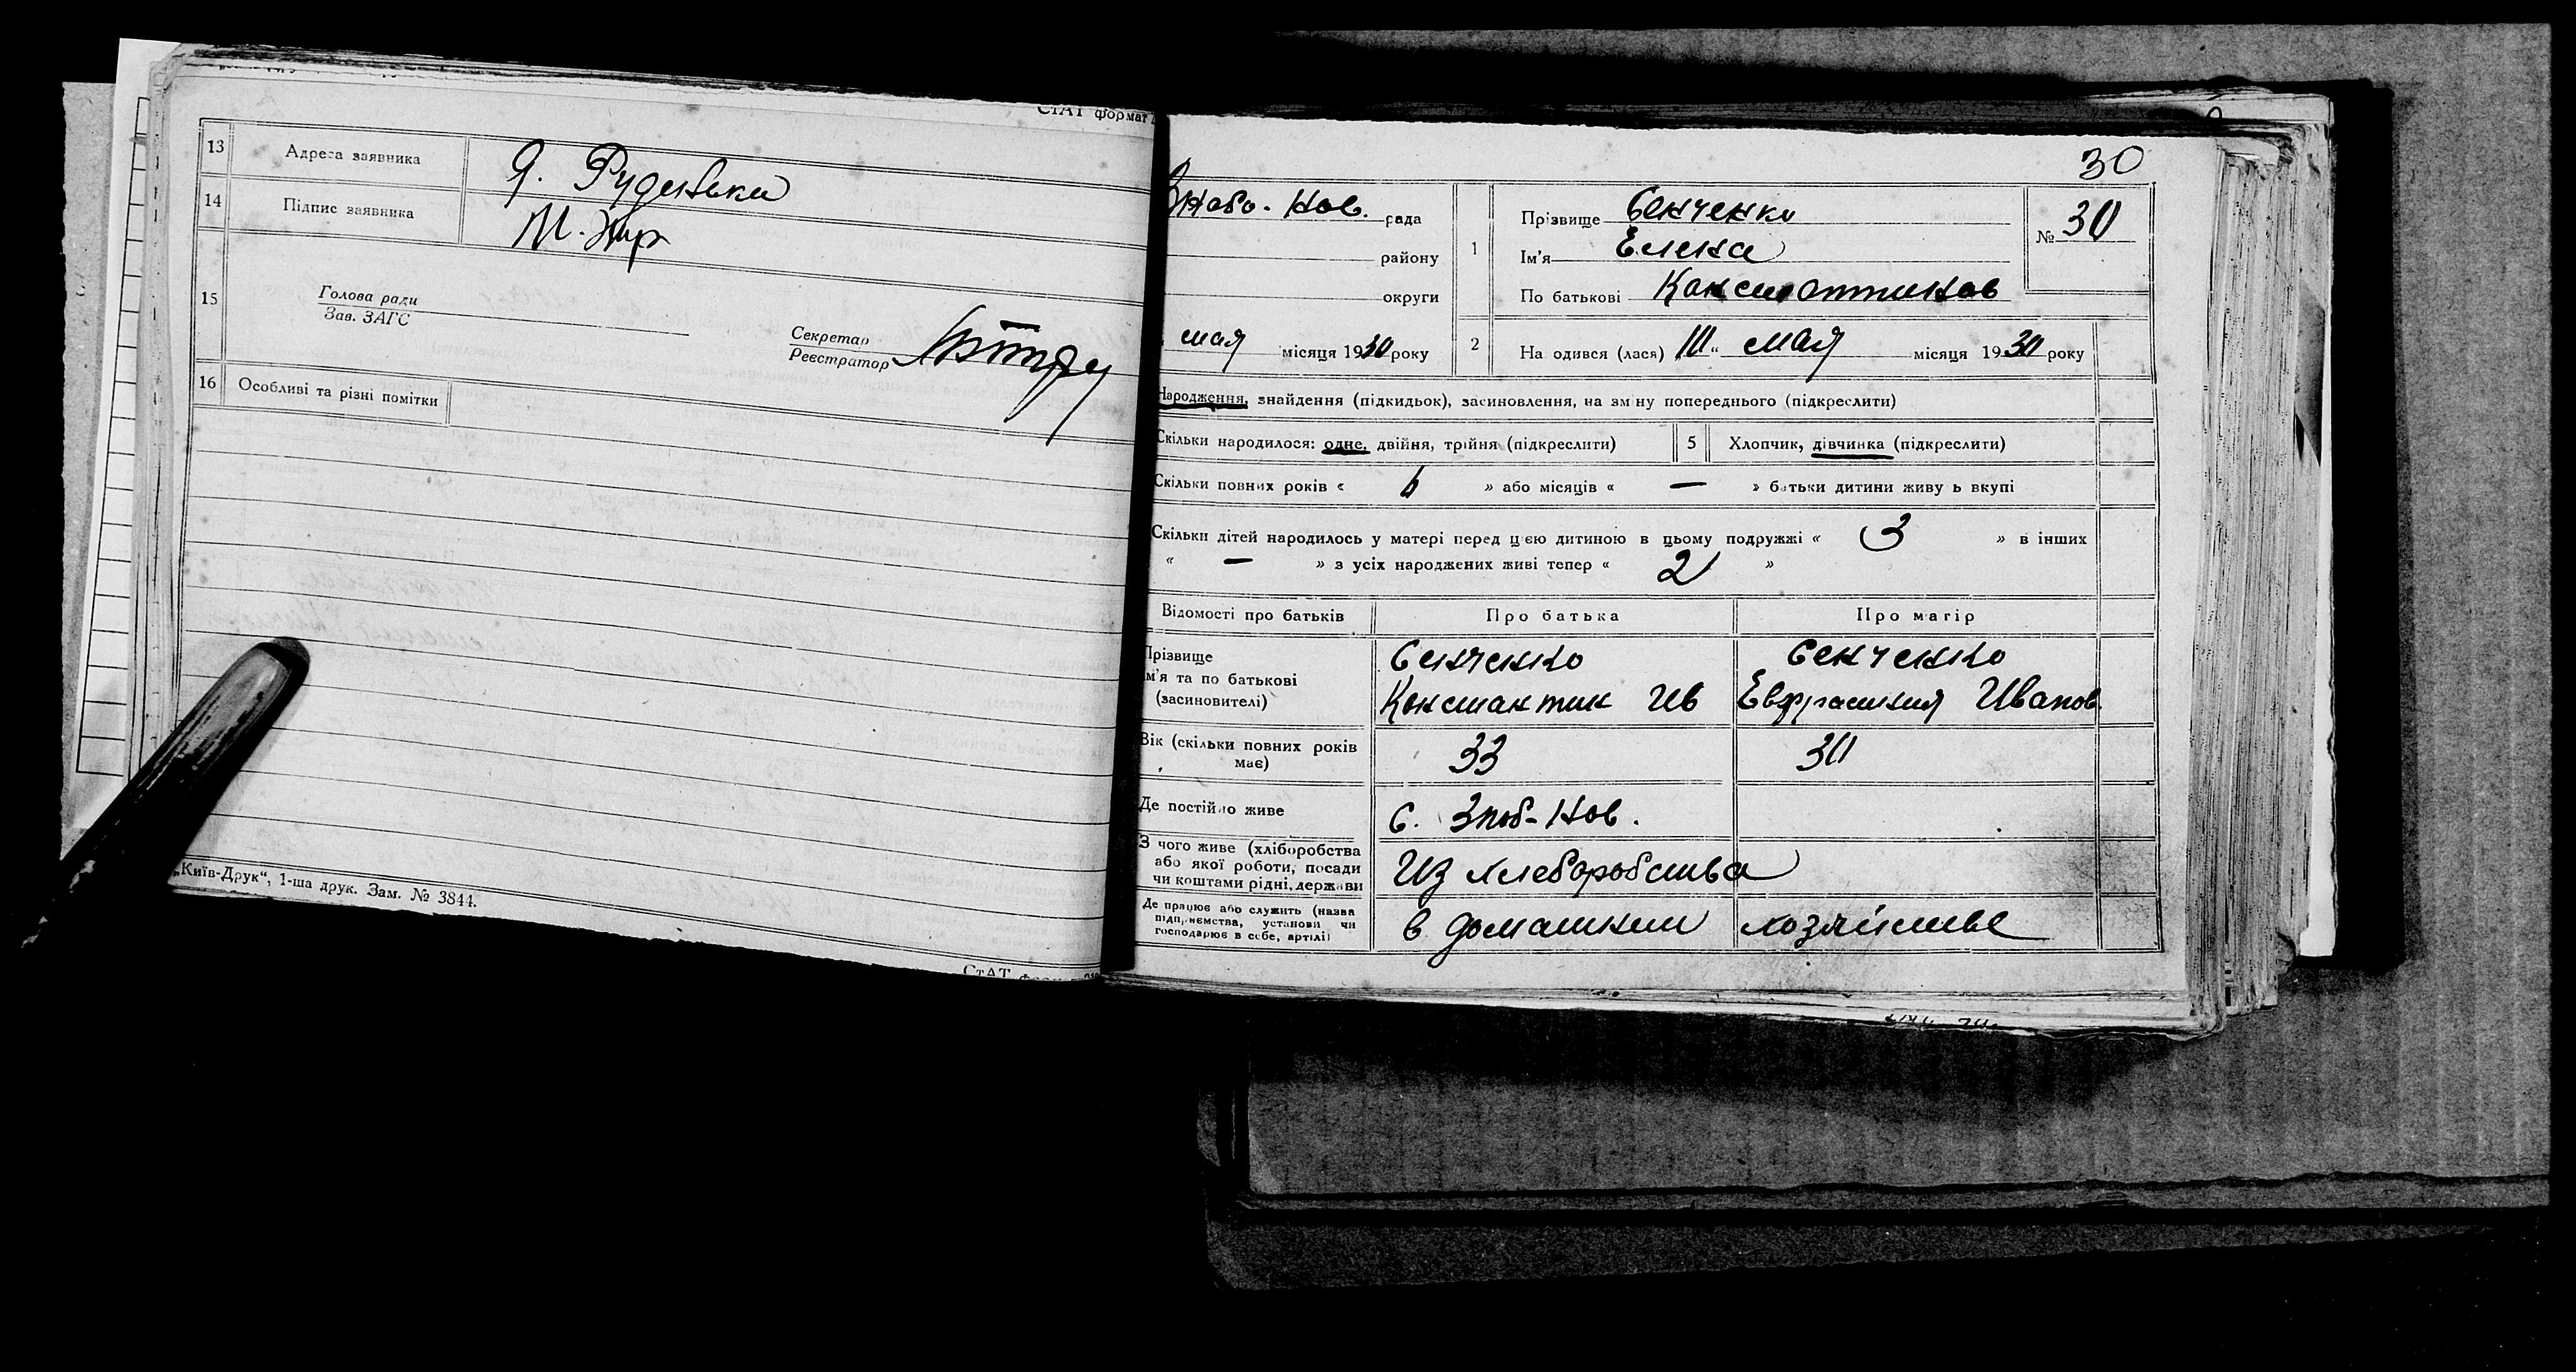 СтАТ формат
13 Адреса заявника Я. Руденьки
14 Підпис заявника
15 Голова ради
Зав. ЗАГС
Секретар
Реєстратор
16 Особливі та різні помітки
„Київ-Друк“, 1-ша друк. Зам. № 3844.
СтАТ
30
Зноbо-Нов. рада
району
округи
мая місяця 1930 року
1 Прізвище Сенченко
Ім'я Елена
По батькові Константинов
№ 30
2 На одився (лася) 10 „ мая місяця 1930 року
Народження, знайдення (підкидьок), засиновлення, на зм ну попереднього (підкреслити)
Скільки народилося: одне, двійня, трійня (підкреслити) 5 Хлопчик, дівчинка (підкреслити)
Скільки повних років « 6 » або місяців « — » батьки дитини живу ь вкупі
Скільки дітей народилось у матері перед цією дитиною в цьому подружжі « 3 » в інших
« — » з усіх народжених живі тепер « 2 »
Відомості про батьків Про батька Про матір
Прізвище Сенченко Сенченко
ім'я та по батькові
(засиновителі) Константин Ив Евфрасиния Иванов.
Вік (скільки повних років
має) 33 30
Де постійно живе с. Зноб-Нов.
З чого живе (хліборобства
або якої роботи, посади
чи коштами рідні, держави Из хлеборобства
Де працює або служить (назва
підприємства, установи чи
господарює в себе, артілі) в домашним хозяйстве